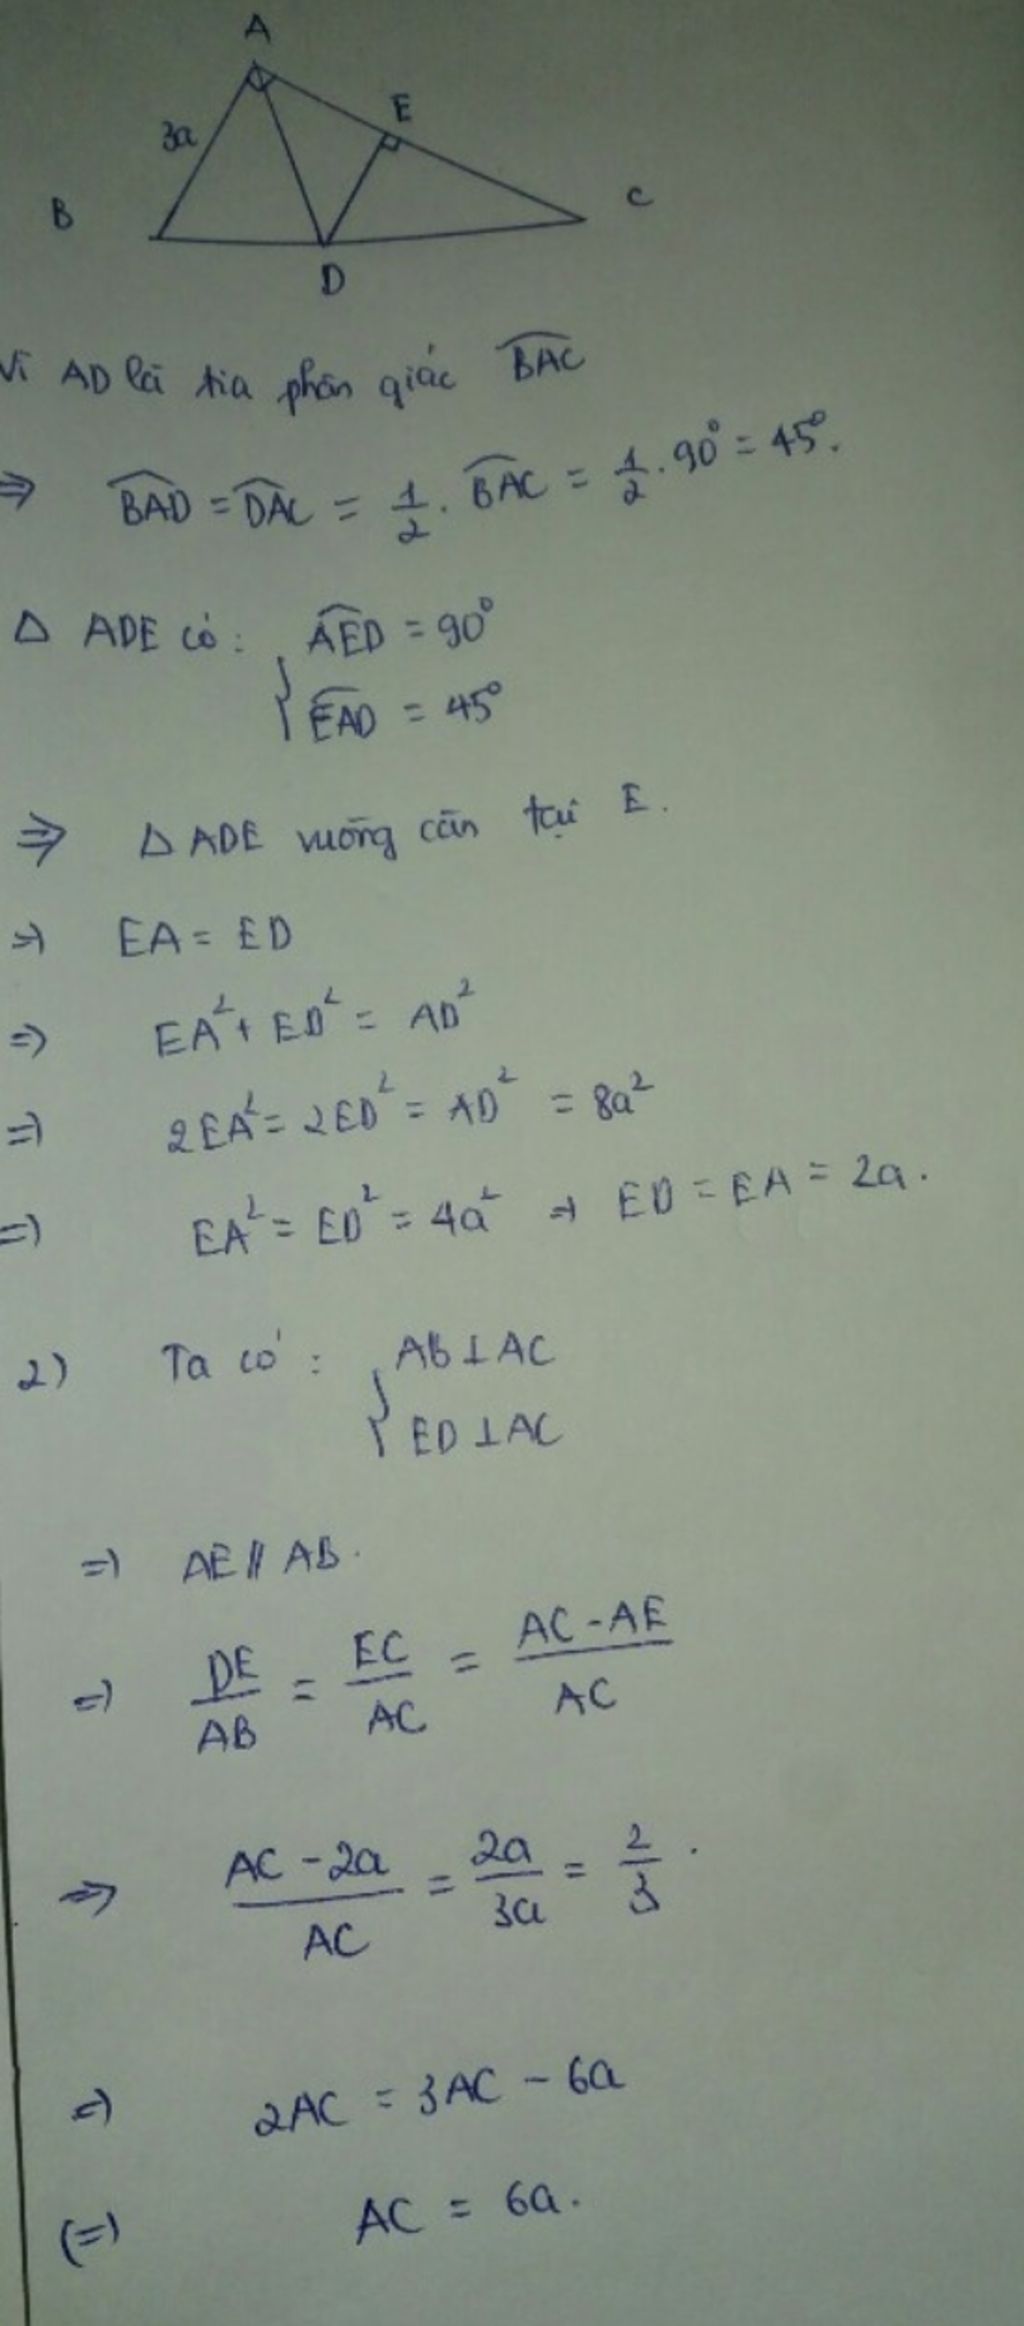 A
E
3a
B
C
D
Vì AD là tia phân giác \widehat{BAC}
=> \widehat{BAD} = \widehat{DAC} = 1/2 . \widehat{BAC} = 1/2 . 90° = 45°.
Δ ADE có: { \widehat{AED} = 90°
\widehat{EAD} = 45°
=> Δ ADE vuông cân tại E.
=> EA = ED
=> EA² + ED² = AD²
=> 2EA² = 2ED² = AD² = 8a²
=> EA² = ED² = 4a² => ED = EA = 2a.
2) Ta có : { AB ⊥ AC
ED ⊥ AC
=> AE // AB.
=> DE/AB = EC/AC = (AC - AE)/AC
=> (AC - 2a)/AC = 2a/3a = 2/3.
=> 2AC = 3AC - 6a
(=) AC = 6a.